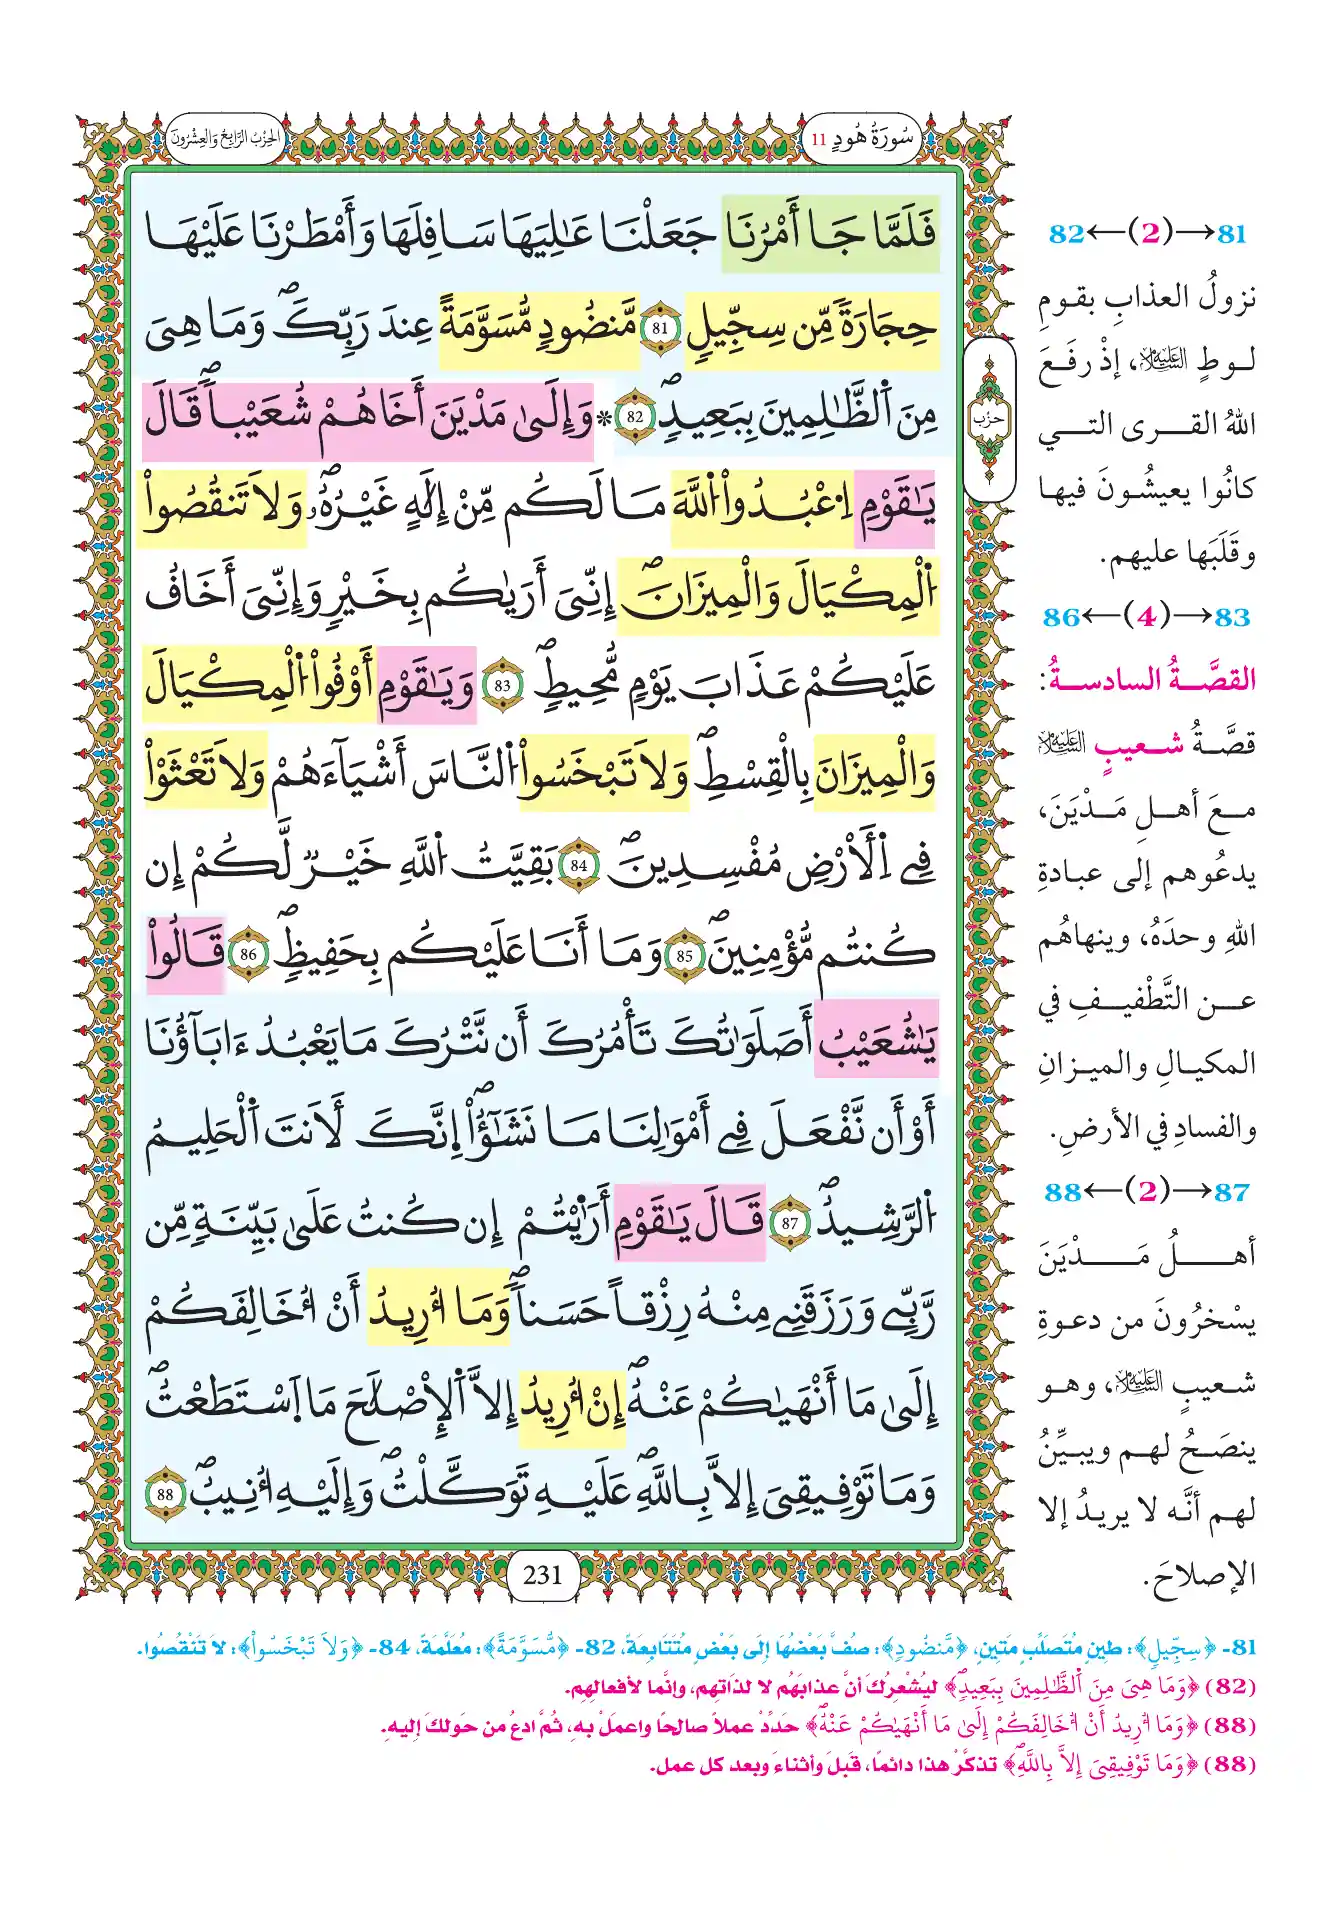 سُورَةُ هُودٍ 11
الحِزْبُ الرَّابِعُ وَالعِشْرُونَ
فَلَمَّا جَا أَمْرُنَا جَعَلْنَا عَٰلِيَهَا سَافِلَهَا وَأَمْطَرْنَا عَلَيْهَا
حِجَارَةً مِّن سِجِّيلٍ 81 مَّنضُودٍ مُّسَوَّمَةً عِندَ رَبِّكَۖ وَمَا هِىَ
مِنَ اَ۬لظَّٰلِمِينَ بِبَعِيدٍۖ 82 * وَإِلَىٰ مَدْيَنَ أَخَاهُمْ شُعَيْباٗۖ قَالَ
يَٰقَوْمِ اِ۟عْبُدُواْ اُ۬للَّهَ مَا لَكُم مِّنْ إِلَٰهٍ غَيْرُهُۥۖ وَلَا تَنقُصُواْ
اُ۬لْمِكْيَالَ وَالْمِيزَانَۖ إِنِّىَ أَرَىٰكُم بِخَيْرٍ وَإِنِّىَ أَخَافُ
عَلَيْكُمْ عَذَابَ يَوْمٍ مُّحِيطٍۖ 83 وَيَٰقَوْمِ أَوْفُواْ اُ۬لْمِكْيَالَ
وَالْمِيزَانَ بِالْقِسْطِۖ وَلَا تَبْخَسُواْ اُ۬لنَّاسَ أَشْيَآءَهُمْ وَلَا تَعْثَوْاْ
فِے اِ۬لْأَرْضِ مُفْسِدِينَۖ 84 بَقِيَّتُ اُ۬للَّهِ خَيْرٌ لَّكُمْ إِن
كُنتُم مُّؤْمِنِينَۖ 85 وَمَا أَنَا عَلَيْكُم بِحَفِيظٍۖ 86 قَالُواْ
يَٰشُعَيْبُ أَصَلَوَٰتُكَ تَأْمُرُكَ أَن نَّتْرُكَ مَا يَعْبُدُ ءَابَآؤُنَا
أَوْ أَن نَّفْعَلَ فِے أَمْوَٰلِنَا مَا نَشَٰٓؤُاْۖ اِنَّكَ لَأَنتَ اَ۬لْحَلِيمُ
اُ۬لرَّشِيدُۖ 87 قَالَ يَٰقَوْمِ أَرَٰيْتُمْ إِن كُنتُ عَلَىٰ بَيِّنَةٍ مِّن
رَّبِّے وَرَزَقَنِے مِنْهُ رِزْقاً حَسَناٗۖ وَمَا أُرِيدُ أَنْ أُخَالِفَكُمْ
إِلَىٰ مَا أَنْهَىٰكُمْ عَنْهُۖ إِنْ أُرِيدُ إِلَّا اَ۬لْإِصْلَٰحَ مَا اَ۪سْتَطَعْتُۖ
وَمَا تَوْفِيقِىَ إِلَّا بِاللَّهِۖ عَلَيْهِ تَوَكَّلْتُۖ وَإِلَيْهِ أُنِيبُۖ 88
حزب
231
81→(2)←82
نزولُ العذابِ بقومِ
لوطٍ عليه السلام، إذْ رفَعَ
اللهُ القرى التي
كانُوا يعيشُونَ فيها
وقَلَبَها عليهم.
83→(4)←86
القصَّةُ السادسةُ:
قصَّةُ شعيبٍ عليه السلام
معَ أهلِ مَدْيَنَ،
يدعُوهم إلى عبادةِ
اللهِ وحدَهُ، وينهاهُم
عن التَّطْفيفِ في
المكيالِ والميزانِ
والفسادِ في الأرضِ.
87→(2)←88
أهلُ مَدْيَنَ
يسْخرُونَ من دعوةِ
شعيبٍ عليه السلام، وهو
ينصَحُ لهم ويبيِّنُ
لهم أنَّه لا يريدُ إلا
الإصلاحَ.
81- ﴿سِجِّيلٍ﴾: طِينٍ مُتَصَلِّبٍ مَتِينٍ، ﴿مَّنضُودٍ﴾: صُفَّ بَعْضُهَا إِلَى بَعْضٍ مُتَتَابِعَةً، 82- ﴿مُّسَوَّمَةً﴾: مُعَلَّمَةً، 84- ﴿وَلَا تَبْخَسُواْ﴾: لَا تَنْقُصُوا.
(82) ﴿وَمَا هِىَ مِنَ اَ۬لظَّٰلِمِينَ بِبَعِيدٍۖ﴾ ليُشْعِرُكَ أنَّ عذابَهُم لا لذَاتِهم، وإنَّما لأفعالِهم.
(88) ﴿وَمَا أُرِيدُ أَنْ أُخَالِفَكُمْ إِلَىٰ مَا أَنْهَىٰكُمْ عَنْهُۖ﴾ حَدِّدْ عملاً صالحًا واعملْ به، ثُمَّ ادعُ من حَولكَ إليهِ.
(88) ﴿وَمَا تَوْفِيقِىَ إِلَّا بِاللَّهِۖ﴾ تذكَّرْ هذا دائمًا، قَبلَ وأثناءَ وبعد كل عمل.